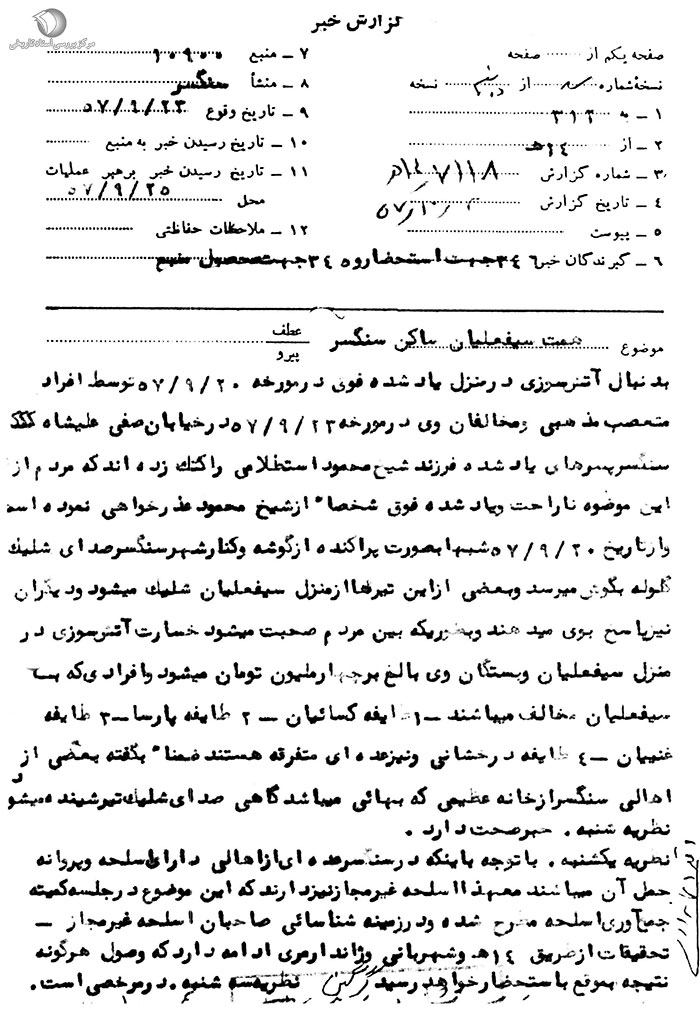 مرکز بررسی اسناد تاریخی
گزارش خبر
صفحه یکم از ........ صفحه
نسخهٔ شماره ........ از ........ نسخه
۱ ـ به ۳۱۲
۲ ـ از ۱۴ه
۳ ـ شماره گزارش ۷۱۱۸/۱۴ه
۴ ـ تاریخ گزارش
۵ ـ پیوست
۶ ـ گیرندگان خبر ۳۴۶ جهت استحضار و ۳۴۵ جهت محصول منبع
۷ ـ منبع ۱۰۹۰۰
۸ ـ منشأ سنگسر
۹ ـ تاریخ وقوع ۵۷/۹/۲۳
۱۰ ـ تاریخ رسیدن خبر به منبع
۱۱ ـ تاریخ رسیدن خبر برهبر عملیات
محل ۵۷/۹/۲۵
۱۲ ـ ملاحظات حفاظتی
موضوع همت سیفعلیان ساکن سنگسر
عطف
پیرو
بدنبال آتش‌سوزی در منزل یاد شده فوق در مورخه ۵۷/۹/۲۰ توسط افراد
متعصب مذهبی ومخالفان وی در مورخه ۵۷/۹/۲۳ در خیابان صفی علیشاه
سنگسر پسرهای یاد شده فرزند شیخ محمود استطلامی را کتک زده اند که مردم از
این موضوه ناراحت ویاد شده فوق شخصا" از شیخ محمود عذرخواهی نموده است
واز تاریخ ۵۷/۹/۲۰ شبها بصورت پراکنده از گوشه وکنار شهر سنگسر صدای شلیك
گلوله بگوش میرسد وبعضی از این تیرها از منزل سیفعلیان شلیك میشود ودیگران
نیز پاسخ بوی میدهند وبطوریکه بین مردم صحبت میشود خسارت آتش‌سوزی در
منزل سیفعلیان وبستگان وی بالغ بر چهار ملیون تومان میشود وافرادی که به
سیفعلیان مخالف میباشند ـ۱ طایفه کسائیان ـ ۲ طایفه پارسا ـ۳ طایفه
غنییان ـ۴ طایفه درخشانی ونیز عده ای متفرقه هستند ضمنا" بگفته بعضی از
اهالی سنگسر از خانه عظیمی که بهائی میباشد گاهی صدای شلیك تیر شینده میشود
نظریه شنبه . خبر صحت دارد .
نظریه یکشنبه . با توجه باینکه در سنگسر عده ای از اهالی دارای اسلحه وپروانه
حمل آن میباشند معهذا اسلحه غیر مجاز نیز دارند که این موضوع در جلسه کمیته
جمع‌آوری اسلحه مطرح شده ودر زمینه شناسائی صاحبان اسلحه غیر مجاز ـ
تحقیقات از طریق ۱۴ه وشهربانی وژاندارمری ادامه دارد که وصول هرگونه
نتیجه بموقع باستحضار خواهد رسید نظریه سه شنبه . در مرخصی است .